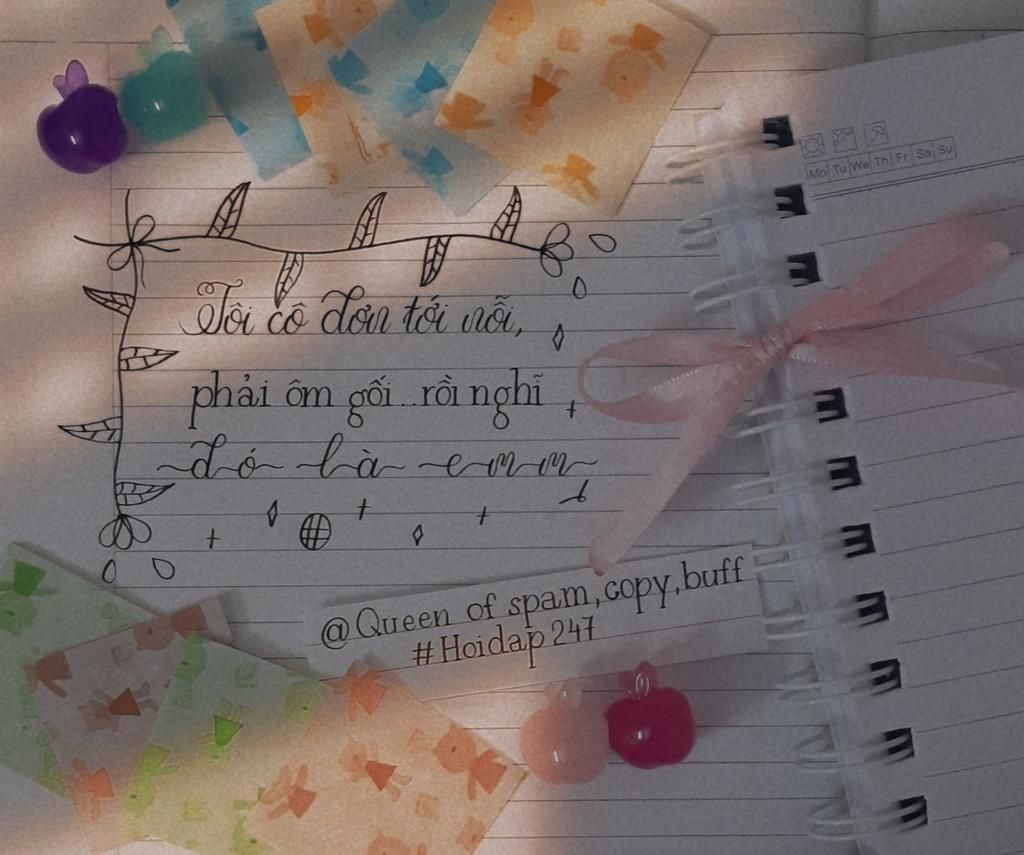 Mo Tu We Th Fr Sa Su
Tôi cô đơn tới nỗi,
phải ôm gối..rồi nghĩ
đó là emm
@Queen of spam,copy,buff
#Hoidap247